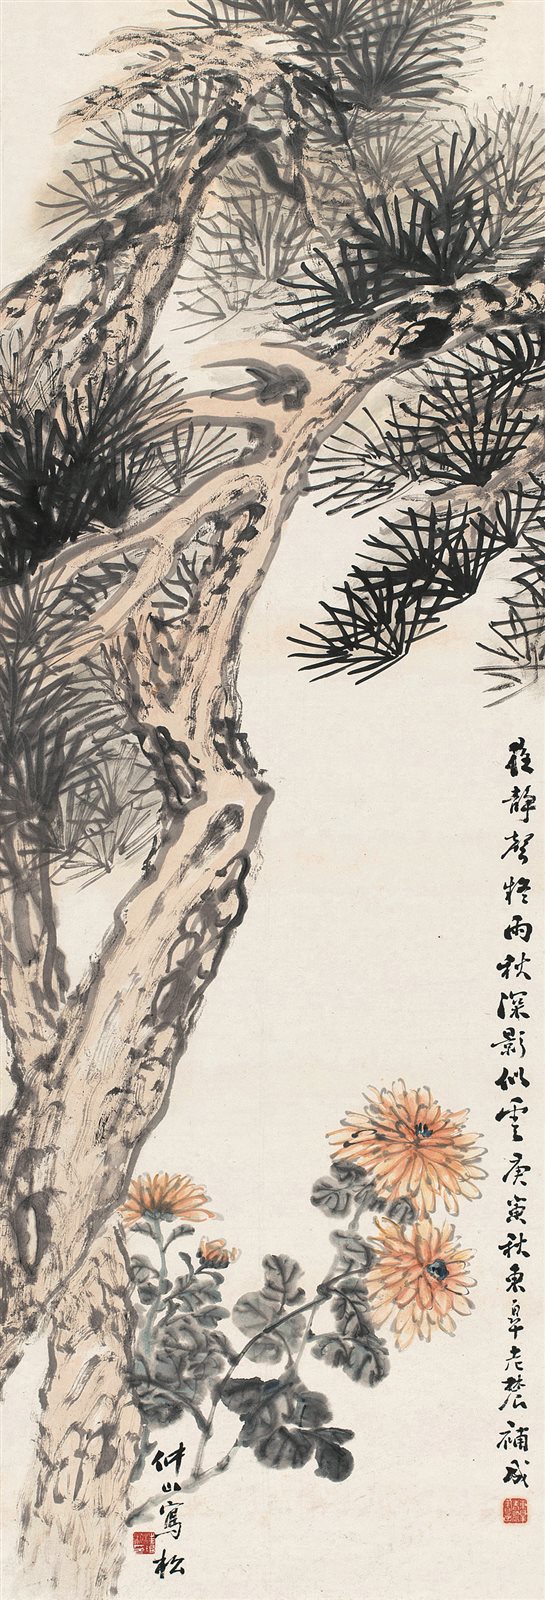 夜静声疑雨秋深影似云庚寅秋东皋老农补成
仲山寫松